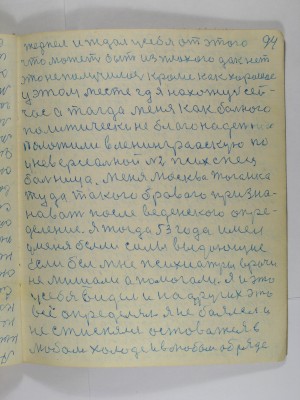 94
жедпел и ждал усебя от этого
что может быть из плохого дак нет
это неполучилос кроме как хорошее
у этом месте где я нахожуся сей-
час а тагда меня как балного
политически не благонадежно
положили вленинградскую по
универсалной №2 псих спец
балница. меня Москва
туда такого бравого призна-
навать после веденского опре-
деление. Я тогда 53 года имел
уменя были силы выдающие
если бы мне психиатры врачи
не мишали а помогали. Я и это
усебя видел и надругих это
всё определял я не баялся и
не стиснялся оставатся в
любом холоде и влюбом обряде